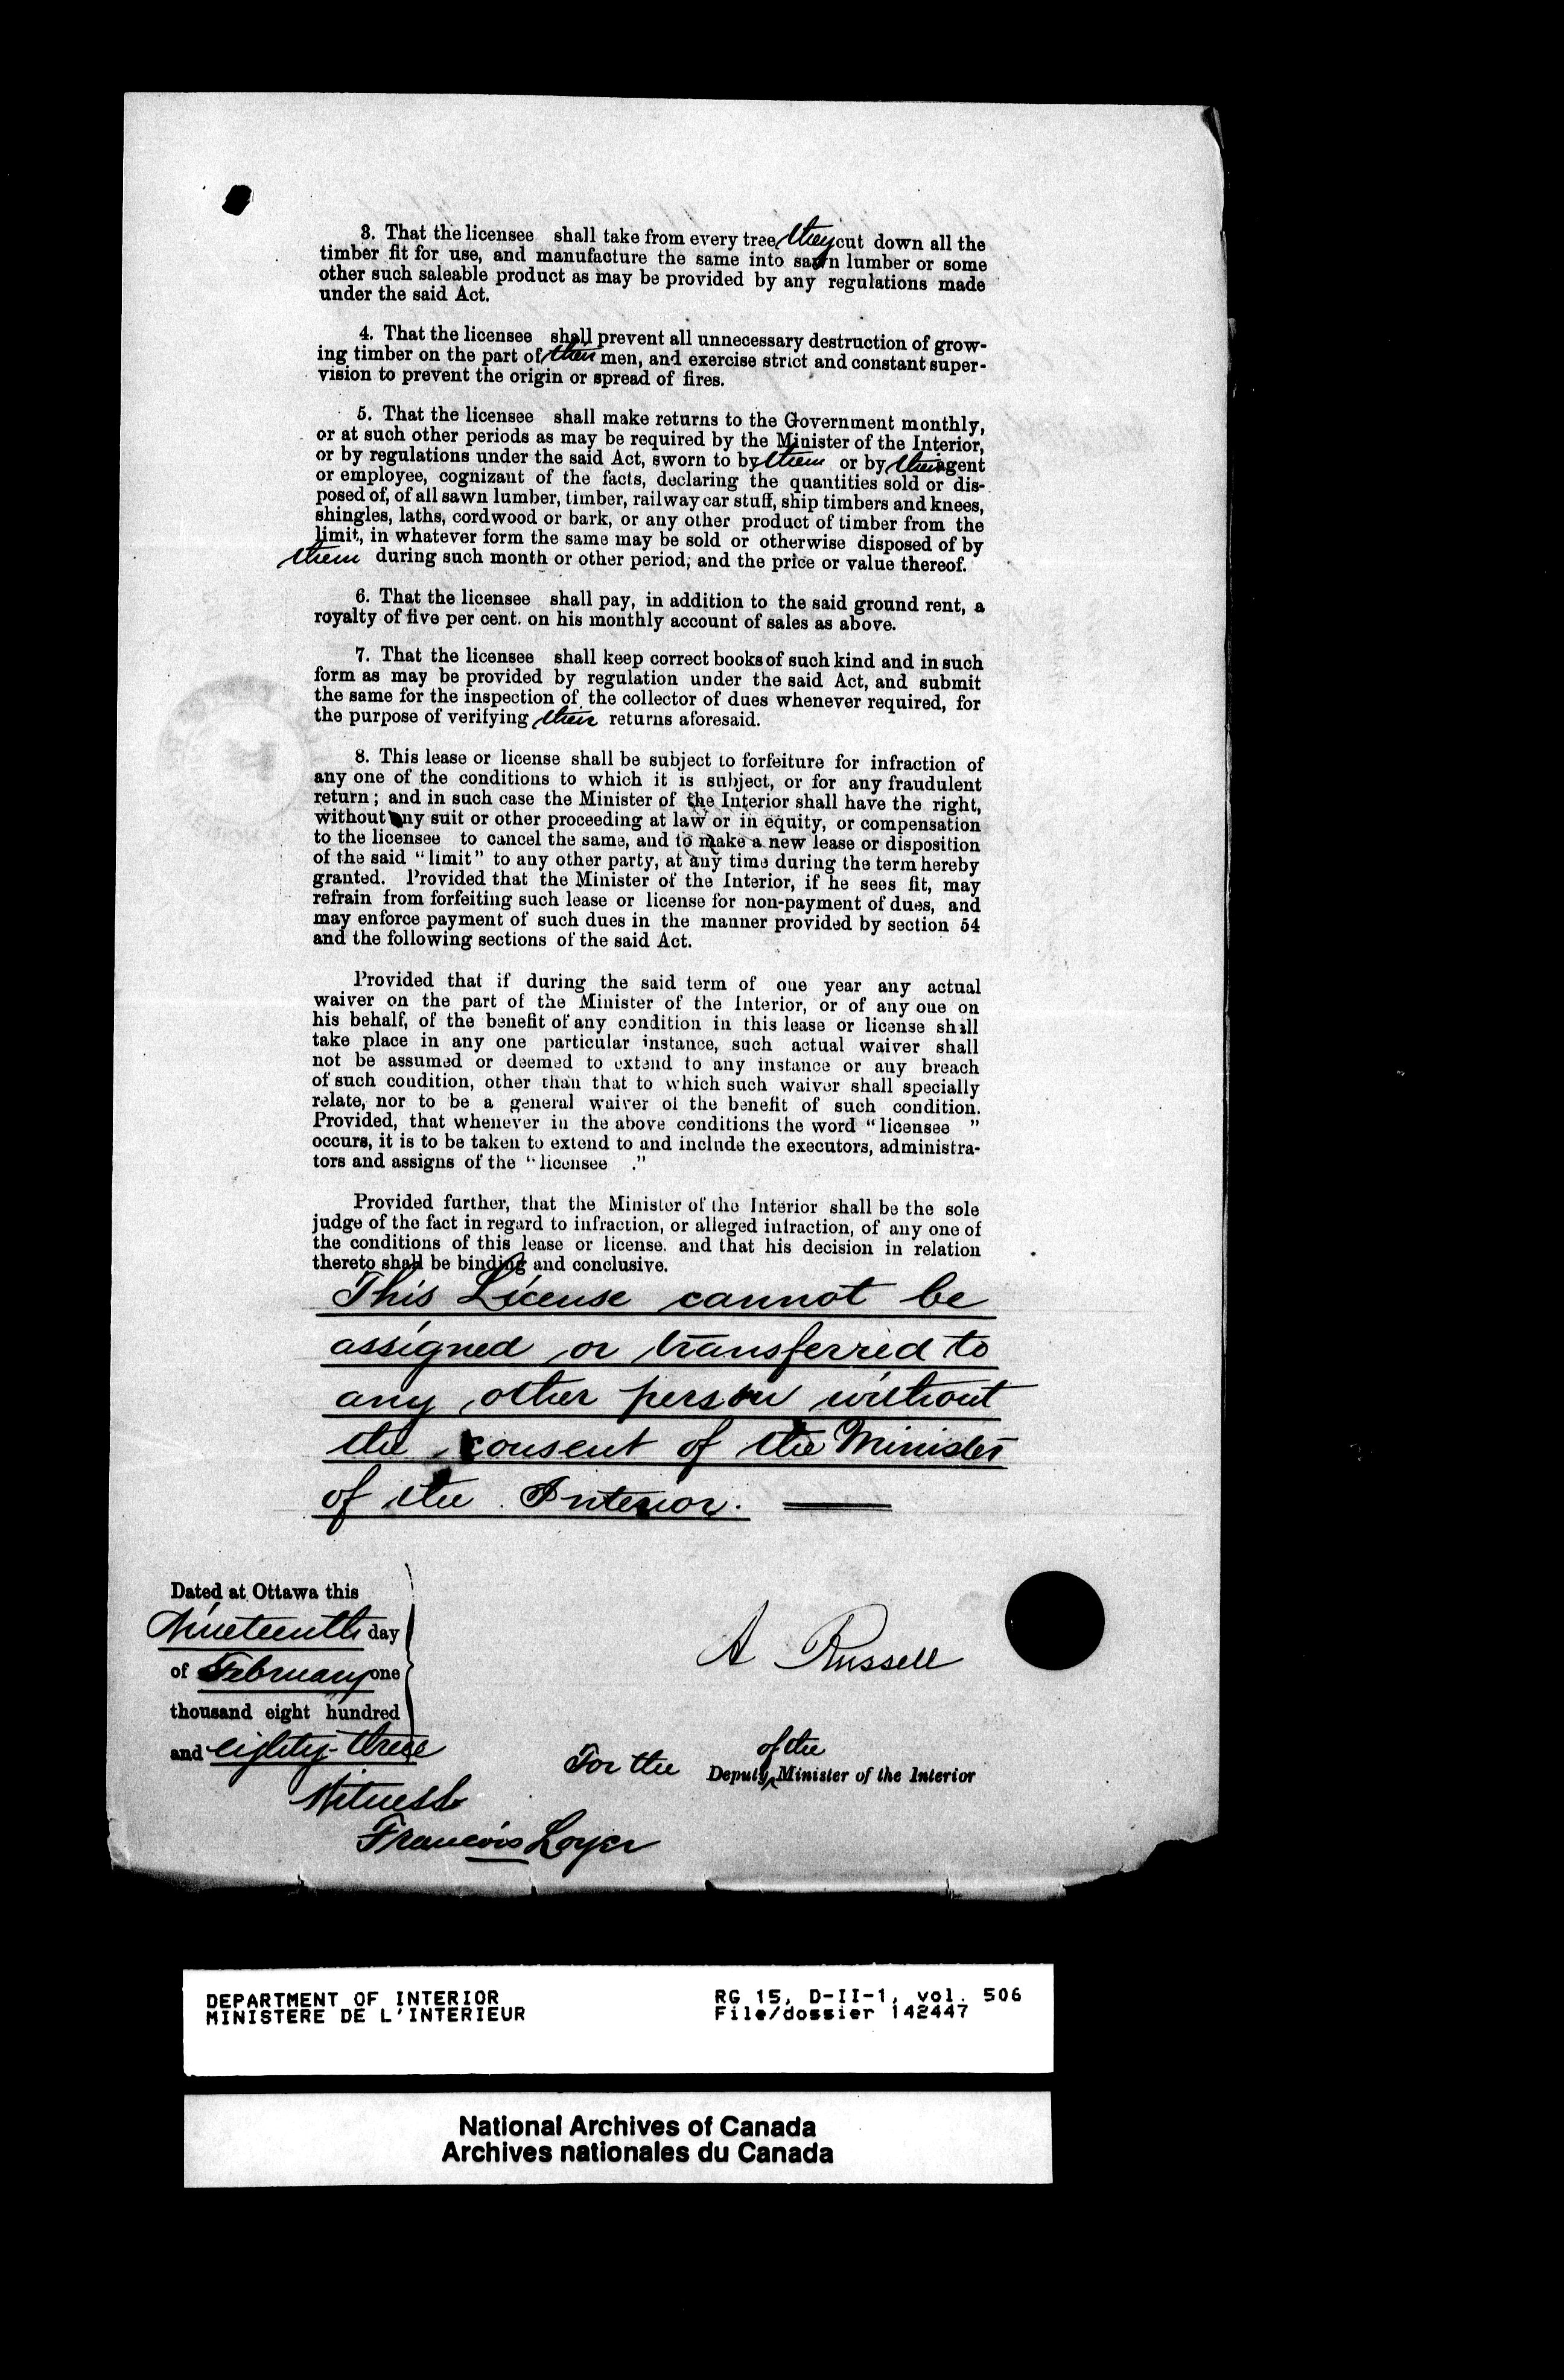 3. That the licensee shall take from every tree they cut down all the
timber fit for use, and manufacture the same into sawn lumber or some
other such saleable product as may be provided by any regulations made
under the said Act.
4. That the licensee shall prevent all unnecessary destruction of grow-
ing timber on the part of their men, and exercise strict and constant super-
vision to prevent the origin or spread of fires.
5. That the licensee shall make returns to the Government monthly,
or at such other periods as may be required by the Minister of the Interior,
or by regulations under the said Act, sworn to by them or by their agent
or employee, cognizant of the facts, declaring the quantities sold or dis-
posed of, of all sawn lumber, timber, railway car stuff, ship timbers and knees,
shingles, laths, cordwood or bark, or any other product of timber from the
limit, in whatever form the same may be sold or otherwise disposed of by
them during such month or other period, and the price or value thereof.
6. That the licensee shall pay, in addition to the said ground rent, a
royalty of five per cent. on his monthly account of sales as above.
7. That the licensee shall keep correct books of such kind and in such
form as may be provided by regulation under the said Act, and submit
the same for the inspection of the collector of dues whenever required, for
the purpose of verifying their returns aforesaid.
8. This lease or license shall be subject to forfeiture for infraction of
any one of the conditions to which it is subject, or for any fraudulent
return; and in such case the Minister of the Interior shall have the right,
without any suit or other proceeding at law or in equity, or compensation
to the licensee to cancel the same, and to make a new lease or disposition
of the said "limit" to any other party, at any time during the term hereby
granted. Provided that the Minister of the Interior, if he sees fit, may
refrain from forfeiting such lease or license for non-payment of dues, and
may enforce payment of such dues in the manner provided by section 54
and the following sections of the said Act.
Provided that if during the said term of one year any actual
waiver on the part of the Minister of the Interior, or of any one on
his behalf, of the benefit of any condition in this lease or license shall
take place in any one particular instance, such actual waiver shall
not be assumed or deemed to extend to any instance or any breach
of such condition, other than that to which such waiver shall specially
relate, nor to be a general waiver of the benefit of such condition.
Provided, that whenever in the above conditions the word "licensee "
occurs, it is to be taken to extend to and include the executors, administra-
tors and assigns of the "licensee ."
Provided further, that the Minister of the Interior shall be the sole
judge of the fact in regard to infraction, or alleged infraction, of any one of
the conditions of this lease or license. and that his decision in relation
thereto shall be binding and conclusive.
This License cannot be
assigned or transferred to
any other person without
the consent of the Minister
of the Interior.
Dated at Ottawa this
Nineteenth day
of February one
thousand eight hundred
and eighty-three
A Russell
For the Deputy of the Minister of the Interior
Witness
Francois Loyer
DEPARTMENT OF INTERIOR
MINISTERE DE L'INTERIEUR
RG 15, D-II-1, vol. 506
File/dossier 142447
National Archives of Canada
Archives nationales du Canada